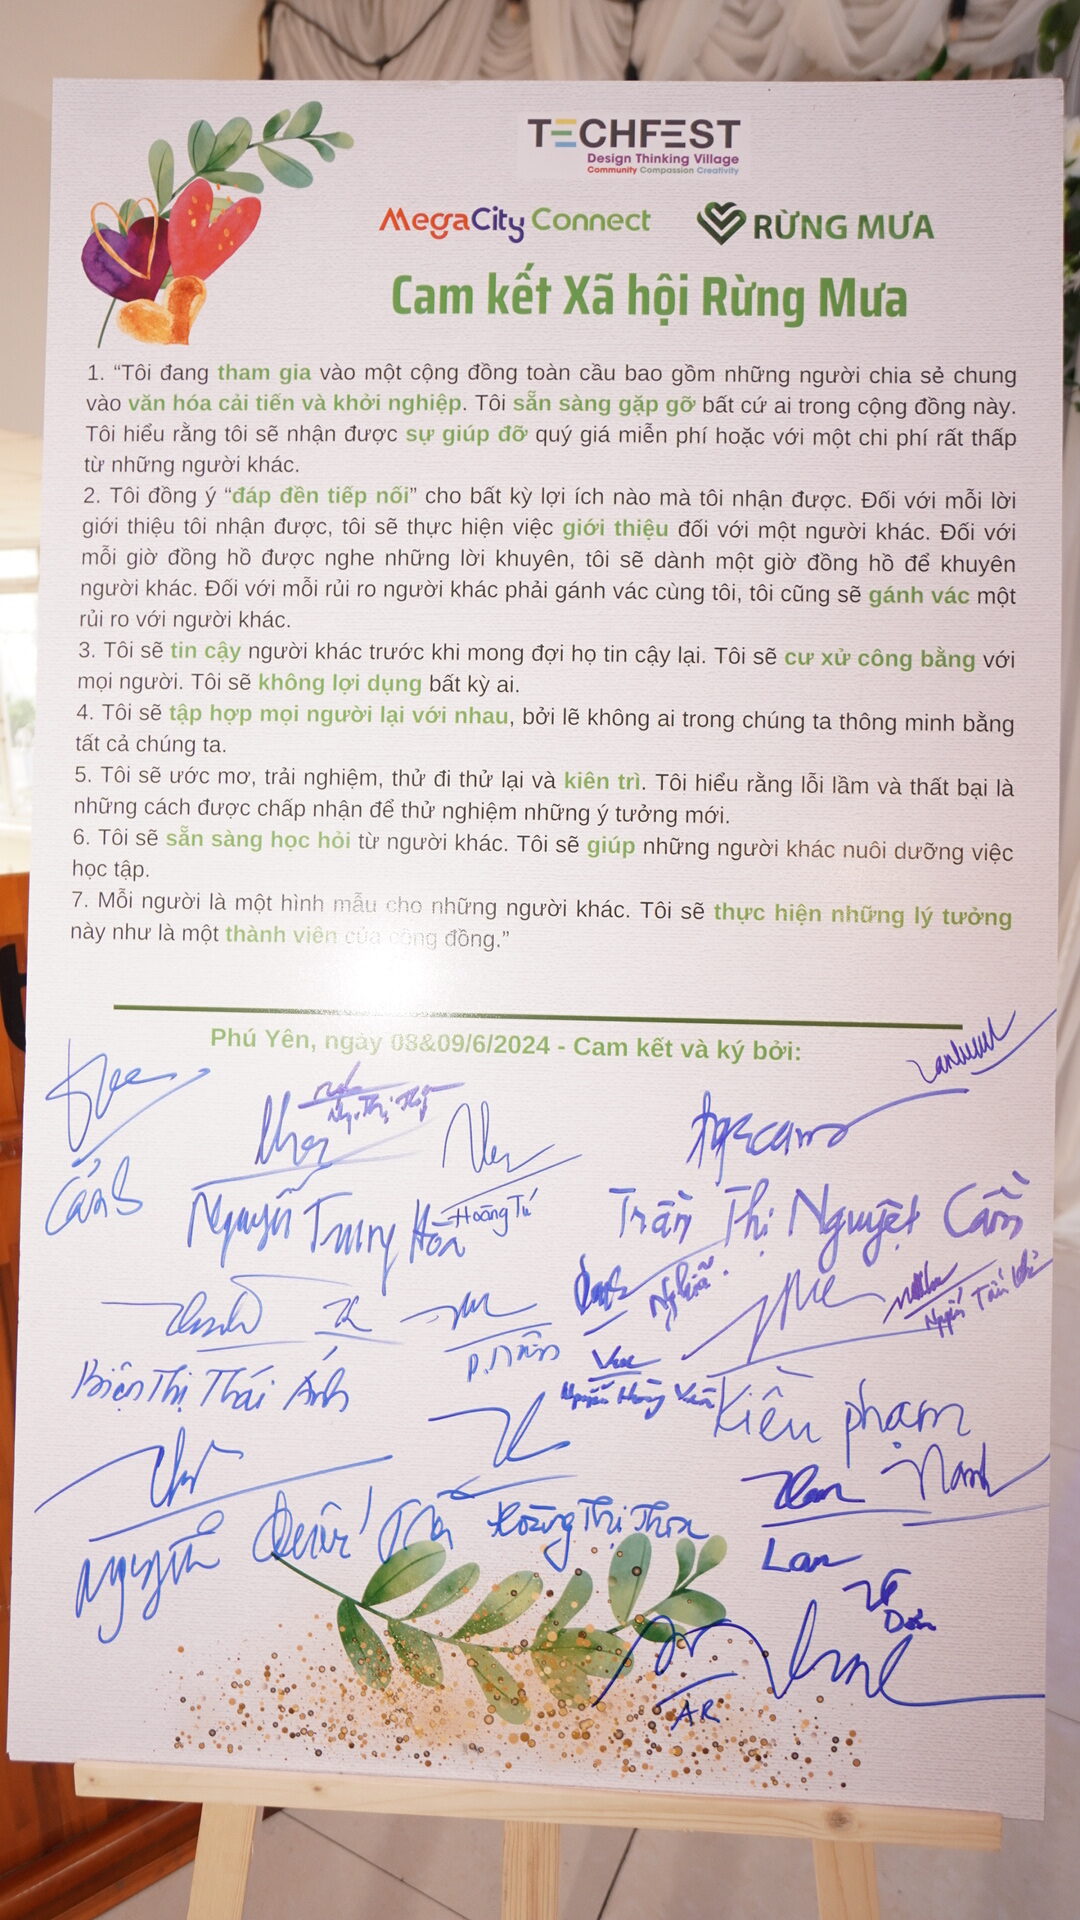 TECHFEST
Design Thinking Village
Community Compassion Creativity
MegaCity Connect
RỪNG MƯA
Cam kết Xã hội Rừng Mưa
1. “Tôi đang tham gia vào một cộng đồng toàn cầu bao gồm những người chia sẻ chung
vào văn hóa cải tiến và khởi nghiệp. Tôi sẵn sàng gặp gỡ bất cứ ai trong cộng đồng này.
Tôi hiểu rằng tôi sẽ nhận được sự giúp đỡ quý giá miễn phí hoặc với một chi phí rất thấp
từ những người khác.
2. Tôi đồng ý “đáp đền tiếp nối” cho bất kỳ lợi ích nào mà tôi nhận được. Đối với mỗi lời
giới thiệu tôi nhận được, tôi sẽ thực hiện việc giới thiệu đối với một người khác. Đối với
mỗi giờ đồng hồ được nghe những lời khuyên, tôi sẽ dành một giờ đồng hồ để khuyên
người khác. Đối với mỗi rủi ro người khác phải gánh vác cùng tôi, tôi cũng sẽ gánh vác một
rủi ro với người khác.
3. Tôi sẽ tin cậy người khác trước khi mong đợi họ tin cậy lại. Tôi sẽ cư xử công bằng với
mọi người. Tôi sẽ không lợi dụng bất kỳ ai.
4. Tôi sẽ tập hợp mọi người lại với nhau, bởi lẽ không ai trong chúng ta thông minh bằng
tất cả chúng ta.
5. Tôi sẽ ước mơ, trải nghiệm, thử đi thử lại và kiên trì. Tôi hiểu rằng lỗi lầm và thất bại là
những cách được chấp nhận để thử nghiệm những ý tưởng mới.
6. Tôi sẽ sẵn sàng học hỏi từ người khác. Tôi sẽ giúp những người khác nuôi dưỡng việc
học tập.
7. Mỗi người là một hình mẫu cho những người khác. Tôi sẽ thực hiện những lý tưởng
này như là một thành viên của cộng đồng.”
Phú Yên, ngày 08&09/6/2024 - Cam kết và ký bởi:
Nguyễn Trung
Hoàng Tú
Trần Thị Nguyệt Cầm
Nghĩa
Biện Thị Thái Ánh
Kiều phạm
Nguyễn
Hoàng Thị Thoa
Lan
AR